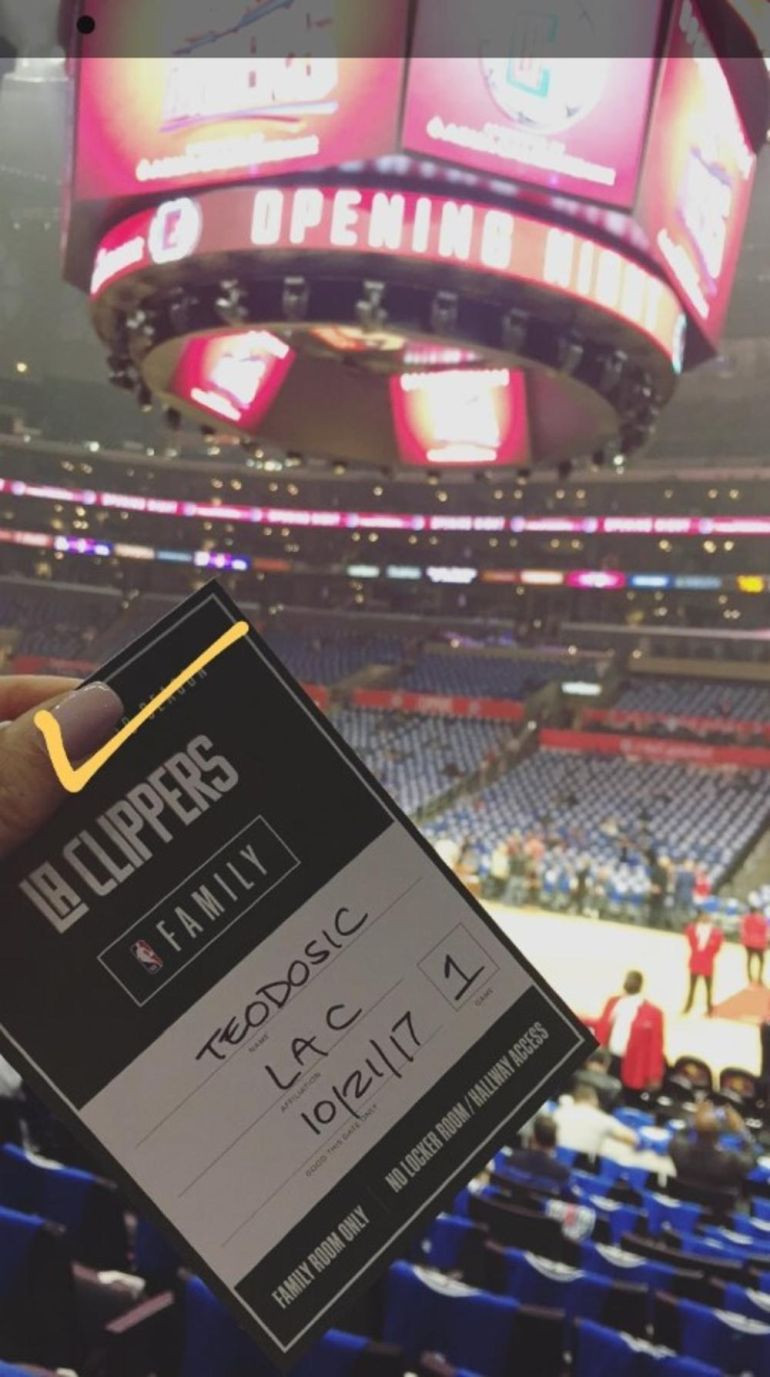 OPENING NIGHT
SEASON
LA CLIPPERS
FAMILY
TEODOSIC
NAME
LAC
AFFILIATION
10/21/17
GOOD THIS DATE ONLY
1
GAME
FAMILY ROOM ONLY
NO LOCKER ROOM / HALLWAY ACCESS